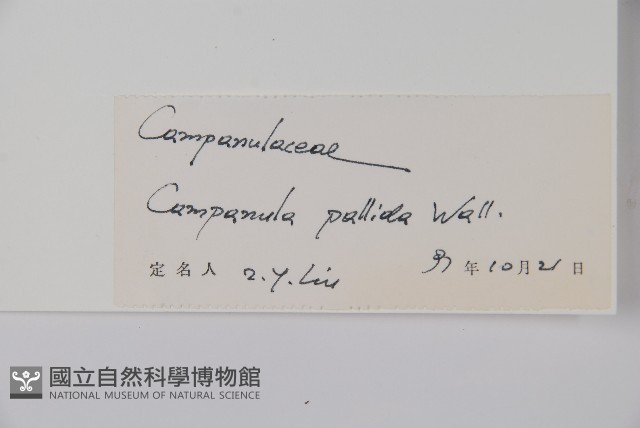 Campanulaceae
Campanula pallida Wall.
定名人 Z.Y.Liu 91年10月21日
國立自然科學博物館
NATIONAL MUSEUM OF NATURAL SCIENCE